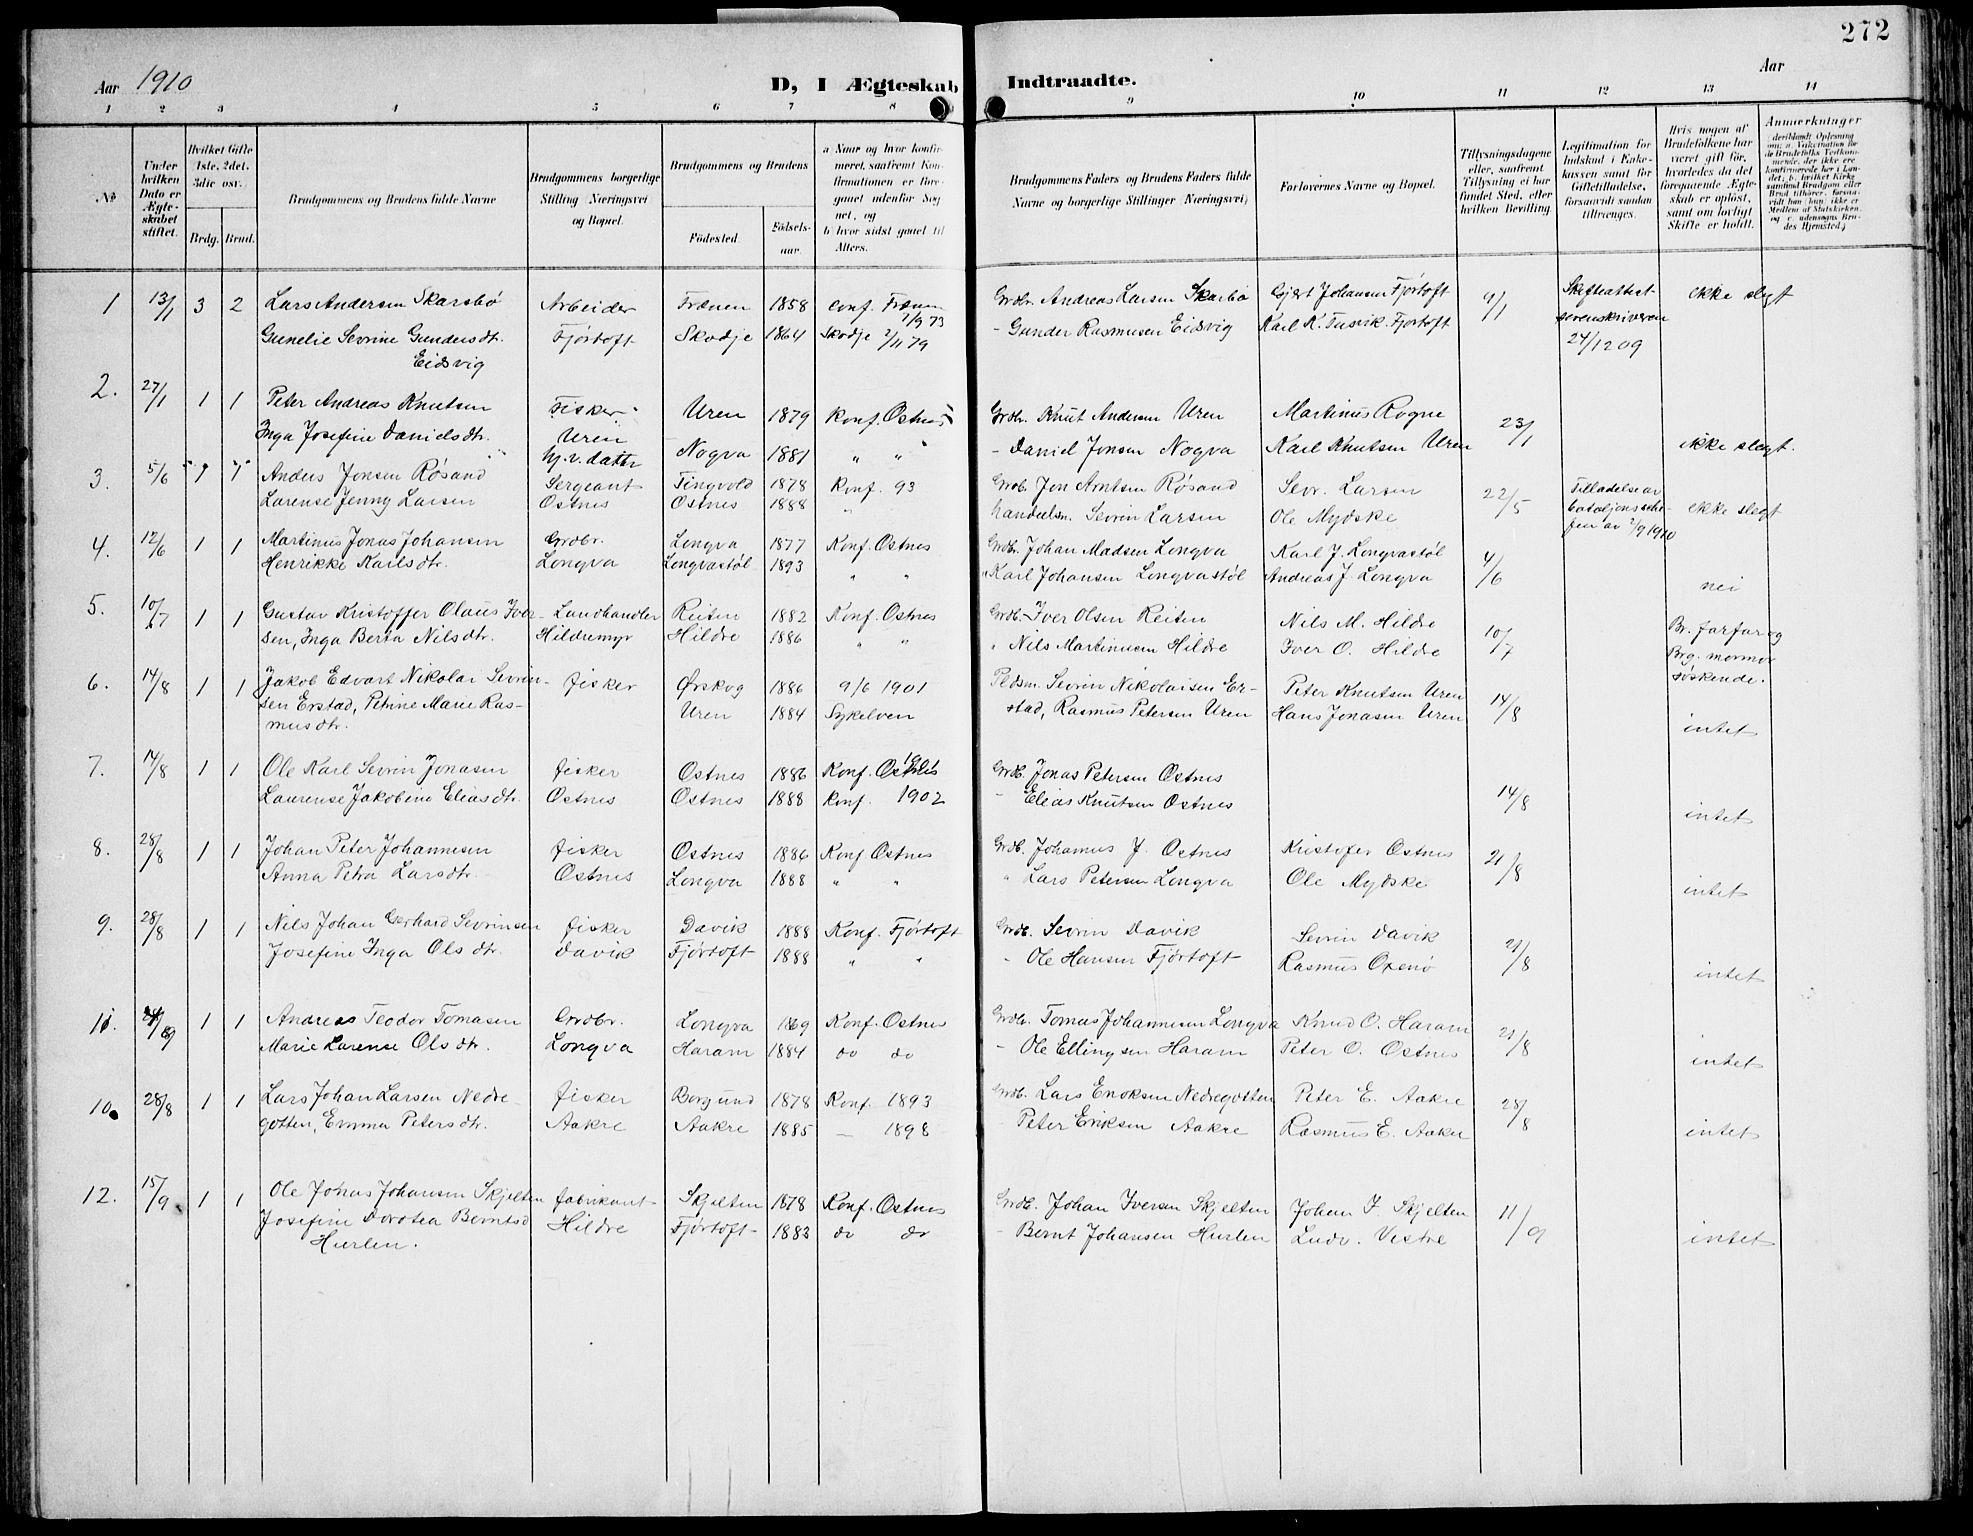 272
Aar 1910 D, I Ægteskab Indtraadte. Aar
1 2 3 4 5 6 7 8 9 10 11 12 13 14
№
Under hvilken Dato er Ægteskabet stiftet.
Hvilket Gifte 1ste, 2det, 3die osv.
Brdg. Brud.
Brudgommens og Brudens fulde Navne
Brudgommens borgerlige Stilling Næringsvei og Bopæl.
Brudgommens og Brudens
Fødested. Fødselsaar.
a Naar og hvor konfirmeret, saafremt Konfirmationen er foregaaet udenfor Sognet, og
b hvor sidst gaaet til Alters.
Brudgommens Faders og Brudens Faders fulde Navne og borgerlige Stillinger Næringsvei)
Forlovernes Navne og Bopæl.
Tillysningsdagene eller, saafremt Tillysning ei har fundet Sted, efter hvilken Bevilling.
Legitimation for Indskud i Enkekassen samt for Giftetilladelse, forsaavidt saadan tiltrænges.
Hvis nogen af Brudefolkene har været gift før, hvorledes da det foregaaende Ægteskab er opløst, samt om lovligt Skifte er holdt.
Anmærkninger
1 13/1 3 2 Lars Andersen Skarsbø Arbeider Frænen 1858 conf. Frænen 1/9 73 Grdbr. Andreas Larsen Skarbø Gjert Johansen Fjørtoft 9/1 Skifteattest ikke slegt
Gunelie Sevrine Gundersdtr. Fjørtoft Skodje 1864 Skodje 2/11 79 - Gunder Rasmusen Eidsvig Karl K. Fjørtoft sorenskriveren
Eidsvig 24/12 09
2. 27/1 1 1 Peter Andreas Knutsen Fisker Uren 1879 Konf. Ostnes Grdbr. Knut Andersen Uren Martinus Rogne 23/1
Inga Josefine Danielsdtr. Uren Nogva 1881 " " - Daniel Jonsen Nogva Karl Knutsen Uren ikke slegt.
hj.v. datter
3. 5/6 1 1 Anders Jonsen Røsand Sergeant Tingvold 1878 Konf. 93 Grdb. Jon Arntsen Røsand Sevr. Larsen 22/5 Tilladelse av ikke slegt
Larense Jenny Larsen Ostnes Ostnes 1888 " handelsm. Sevrin Larsen Ole Mydske
4. 12/6 1 1 Martinus Jonas Johansen Grdbr. Longva 1877 Konf. Ostnes Grdbr. Johan Madsen Longva Karl J. Longvastøl 4/6
Henrikke Karlsdtr. Longva Longvastøl 1893 " " " Karl Johansen Longvastøl Andreas J. Longva nei
5. 10/7 1 1 Gustav Kristoffer Olaus Iver- Landhandler Reiten 1882 Konf. Ostnes Grdb. Iver Olsen Reiten Nils M. Hildre 10/7 Br. farfar og
sen, Inga Berta Nilsdtr. Hildremyr Hildre 1886 " " Nils Martinusen Hildre Iver O. Hildre Brg. mormor
søskende.
6. 14/8 1 1 Jakob Edvart Nikolai Sevrin- fisker Ørskog 1886 9/6 1901 Pldsm. Sevrin Nikolaisen Er- Peter Knutsen Uren 14/8
sen Erstad, Petrine Marie Ras- Uren 1884 Sykelven stad, Rasmus Petersen Uren Hans Jonasen Uren intet
musdtr.
7. 14/8 1 1 Ole Karl Sevrin Jonasen fisker Ostnes 1886 Konf. Ostnes Grdb. Jonas Petersen Ostnes 14/8
Laurense Jakobine Eliasdtr. Ostnes Ostnes 1888 Konf. 1902 - Elias Knutsen Ostnes intet
8. 28/8 1 1 Johan Peter Johannesen fisker Ostnes 1886 Konf. Ostnes Grdb. Johannes J. Ostnes Kristofer Ostnes 21/8
Anna Petra Larsdtr. Ostnes Longva 1888 " " " Lars Petersen Longva Ole Mydske intet
9. 28/8 1 1 Nils Johan Gerhard Sevrinsen fisker Davik 1888 Konf. Fjørtoft Grdb. Sevrin Davik Sevrin Davik 21/8
Josefine Inga Olsdtr. Davik Fjørtoft 1888 " " - Ole Hansen Fjørtoft Rasmus Oxenø intet
11. 1 1 Andreas Teodor Tomasen Grdbr. Longva 1869 Konf. Ostnes Grdb. Tomas Johannesen Longva Knud O. Haram 21/8
Marie Larense Olsdtr. Longva Haram 1884 do do - Ole Ellingsen Haram Peter O. Ostnes intet
10. 28/8 1 1 Lars Johan Larsen Nedre- fisker Borgund 1878 Konf. 1893 Grdb. Lars Enoksen Nedregotten Peter E. Aakre 28/8
gotten, Emma Petersdtr. Aakre Aakre 1885 — 1898 - Peter Eriksen Aakre Rasmus E. Aakre intet
12. 15/9 1 1 Ole Jonas Johansen Skjelten fabrikant Skjelten 1878 Konf. Ostnes Grdb. Johan Iversen Skjelten Johan I. Skjelten 11/9
Josefine Dorotea Berntsd Hildre Fjørtoft 1883 do do - Bernt Johansen Hurlen Ludv. Vestre intet
Hurlen.